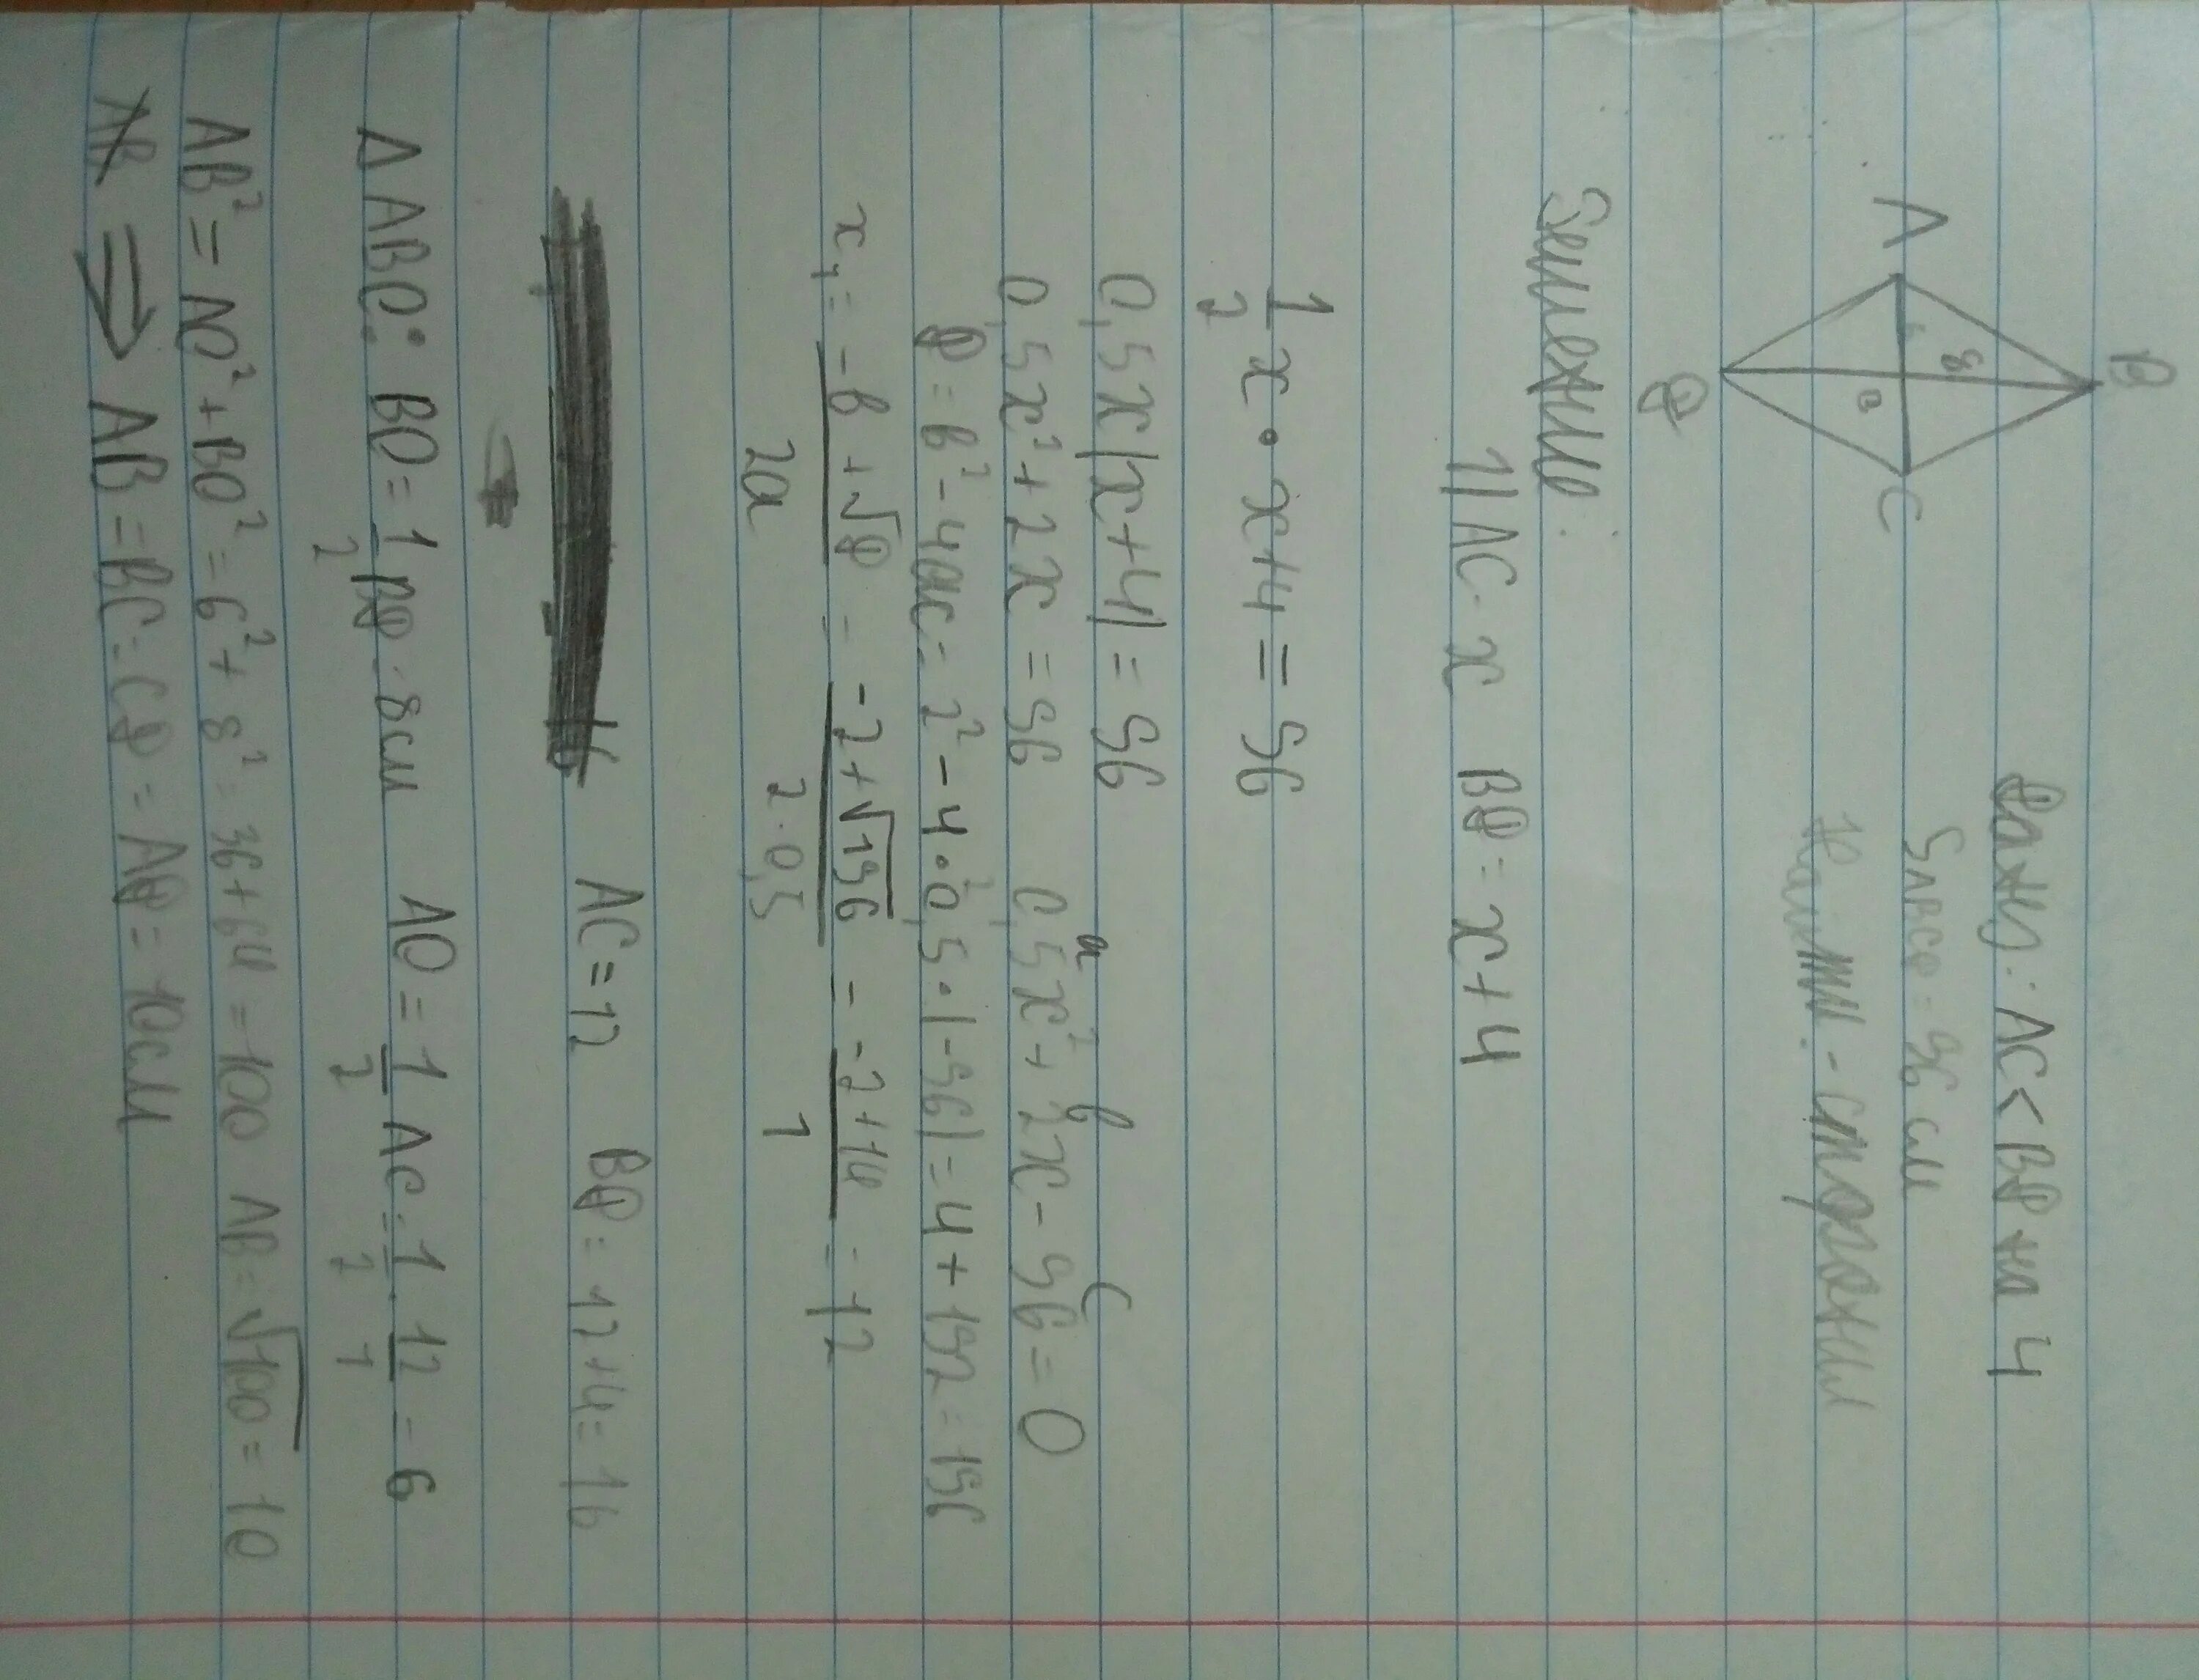 B
A
C
D
8
Дано: AC < BD на 4
SABCD = 96 см
Найти: - стороны
Решение:
1) AC - x BD = x + 4
1/2 x · x + 4 = 96
0,5x(x + 4) = 96
a b c
0,5x² + 2x = 96 0,5x² + 2x - 96 = 0
D = b² - 4ac = 2² - 4 · 0,5 · (-96) = 4 + 192 = 196
x₁ = (-b + √D)/2a = (-2 + √196)/(2 · 0,5) = (-2 + 14)/1 = 12
AC = 12 BD = 12 + 4 = 16
Δ ABO: BO = 1/2 BD = 8см AO = 1/2 AC = 1/2 · 12/1 = 6
AB² = AO² + BO² = 6² + 8² = 36 + 64 = 100 AB = √100 = 10
AB ⇒ AB = BC = CD = AD = 10см